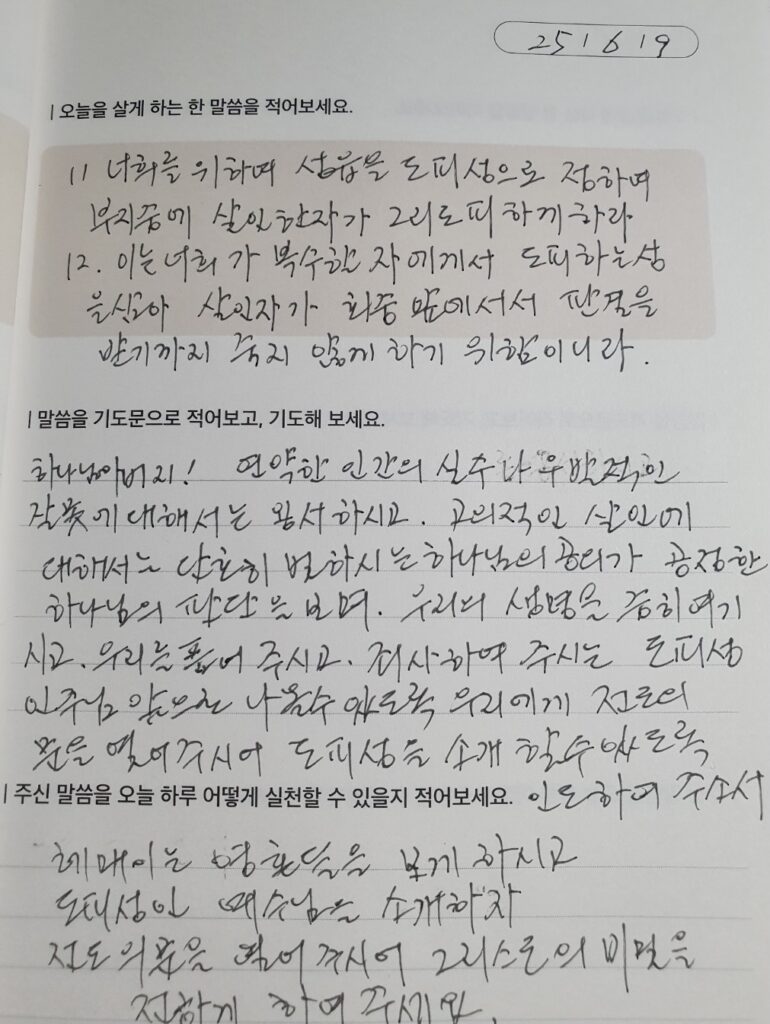 251619
| 오늘을 살게 하는 한 말씀을 적어보세요.
11 너희를 위하여 성읍을 도피성으로 정하여
부지중에 살인한자가 그리도피하게하라
12. 이는너희가 복수할 자에게서 도피하는성
을삼아 살인자가 회중 앞에서서 판결을
받기까지 죽지 않게 하기 위함이니라.
| 말씀을 기도문으로 적어보고, 기도해 보세요.
하나님아버지! 연약한 인간의 실수나 우발적인
잘못에대해서는 용서하시고. 고의적인 살인에
대해서는 단호히 벌하시는하나님의공의가 공정한
하나님의 판단을 보며. 우리의 생명을 중히여기
시고. 우리를품어 주시고. 하여 주시는 도피성
인주님 앞으로 나올수 있도록 우리에게 전도의
문을 열어주시어 도피성을 소개 할수있도록
| 주신 말씀을 오늘 하루 어떻게 실천할 수 있을지 적어보세요. 인도하여 주소서
헤매이는 영혼들을 보게 하시고
도피성인 예수님을 소개하자
전도의문을 열어 주시어 그리스도의 비밀을
전하게 하여 주세요.